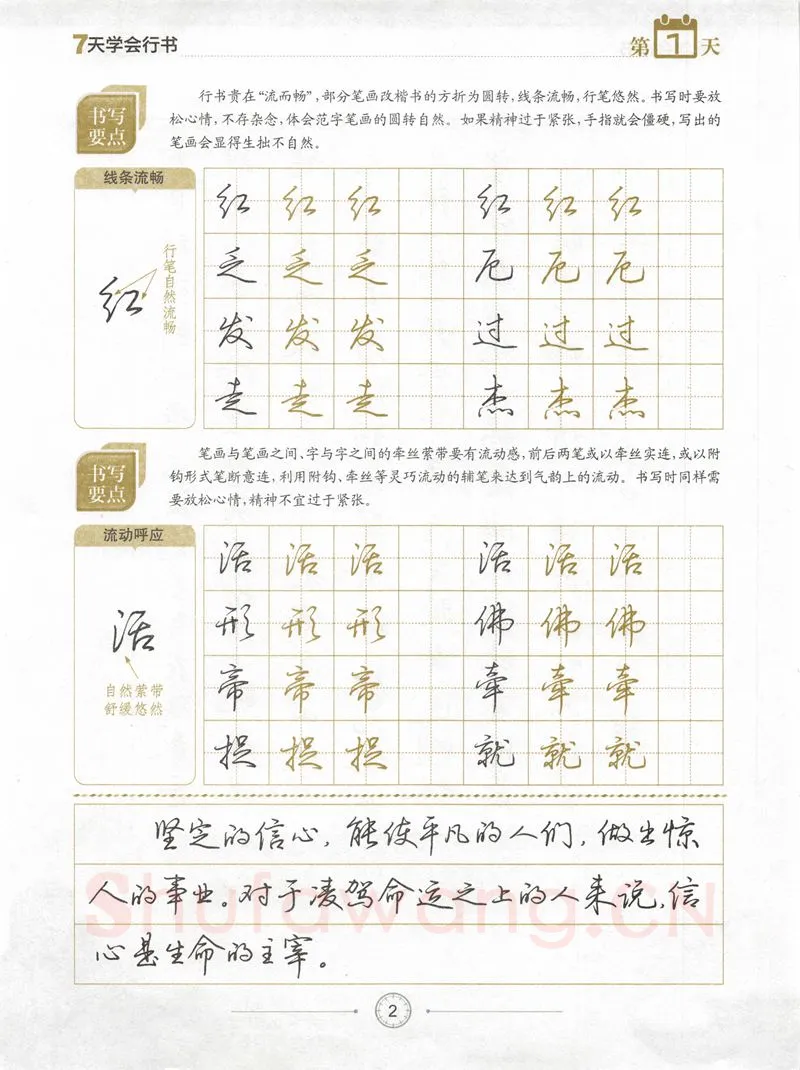 7天学会行书
第1天
书写要点
行书贵在“流而畅”,部分笔画改楷书的方折为圆转,线条流畅,行笔悠然。书写时要放
松心情,不存杂念,体会范字笔画的圆转自然。如果精神过于紧张,手指就会僵硬,写出的
笔画会显得生拙不自然。
线条流畅
红
行笔自然流畅
红 红 红 红 红 红
乏 乏 乏 厄 厄 厄
发 发 发 过 过 过
走 走 走 杰 杰 杰
书写要点
笔画与笔画之间、字与字之间的牵丝萦带要有流动感,前后两笔或以牵丝实连,或以附
钩形式笔断意连,利用附钩、牵丝等灵巧流动的辅笔来达到气韵上的流动。书写时同样需
要放松心情,精神不宜过于紧张。
流动呼应
活
自然萦带
舒缓悠然
活 活 活 活 活 活
形 形 形 佛 佛 佛
帝 帝 帝 牵 牵 牵
损 损 损 就 就 就
坚定的信心,能使平凡的人们,做出惊
人的事业。对于凌驾命运之上的人来说,信
心是生命的主宰。
Shufawang.CN
2